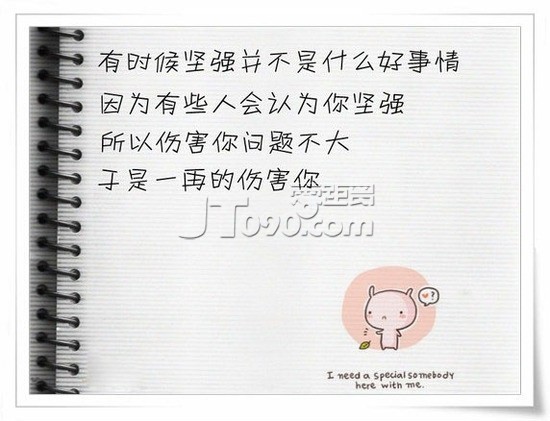 有时候坚强并不是什么好事情
因为有些人会认为你坚强
所以伤害你问题不大
于是一再的伤害你
零距离
JT090.com
?
I need a special somebody
here with me.